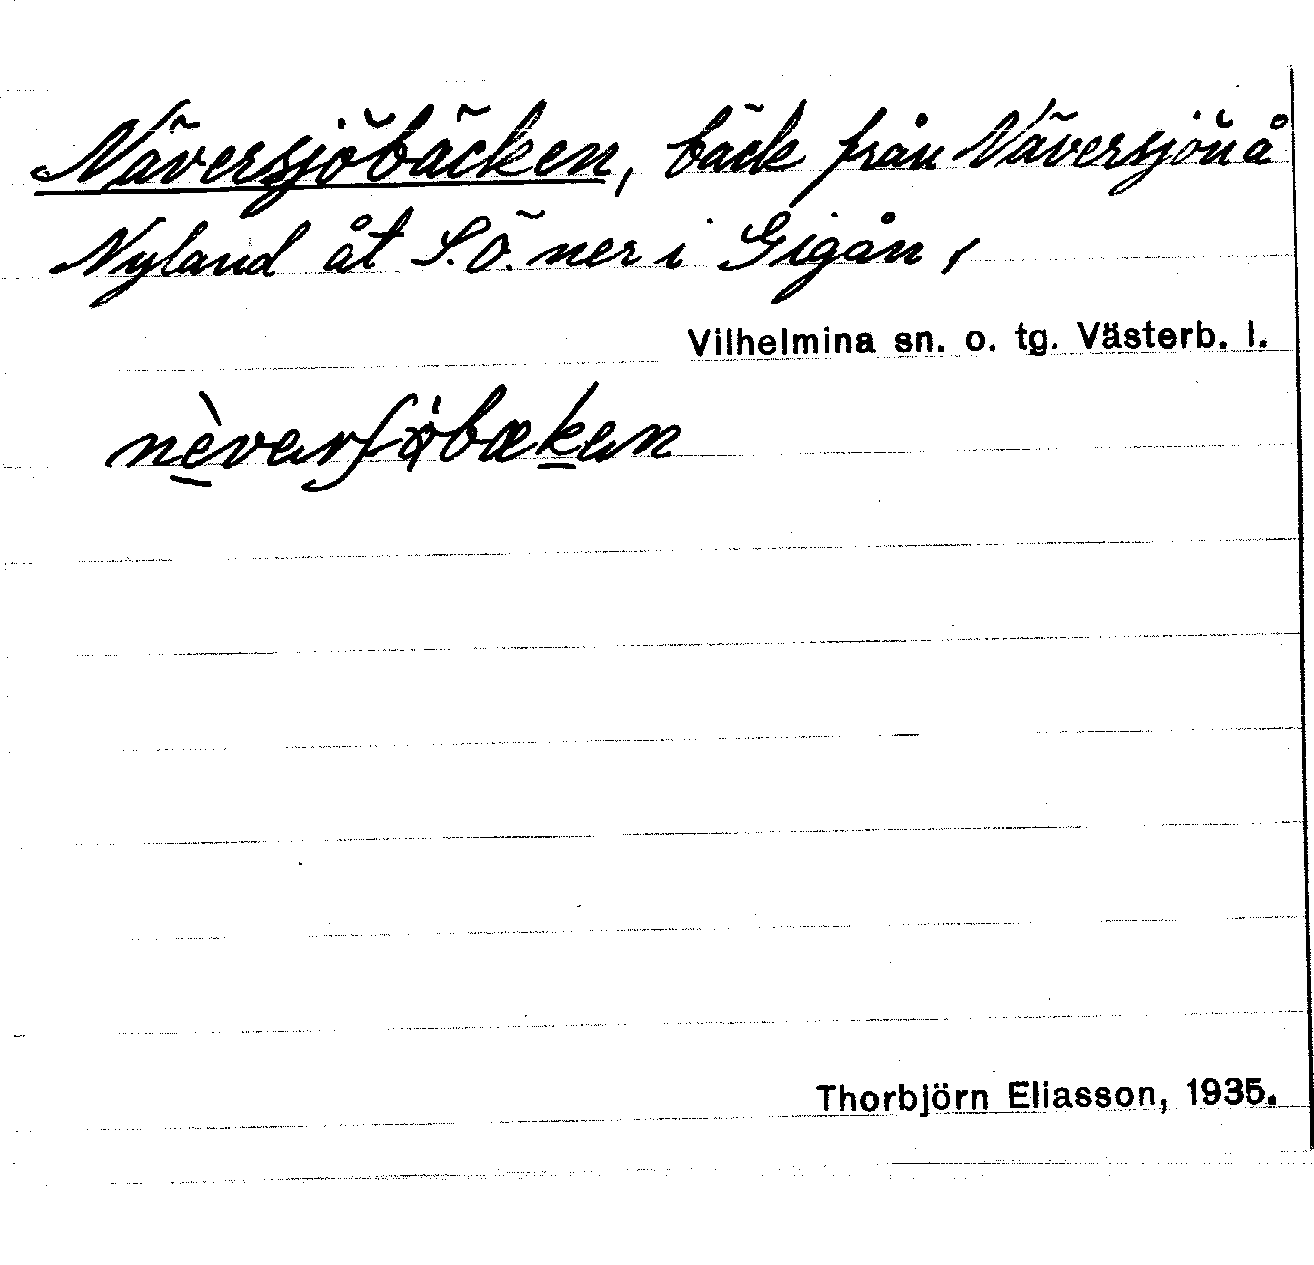 Näversjöbäcken, bäck från Näversjön å
Nyland åt S.Ö. ner i Gigån,
Vilhelmina sn. o. tg. Västerb. l.
nèvarʃǿbækan
Thorbjörn Eliasson, 1935.